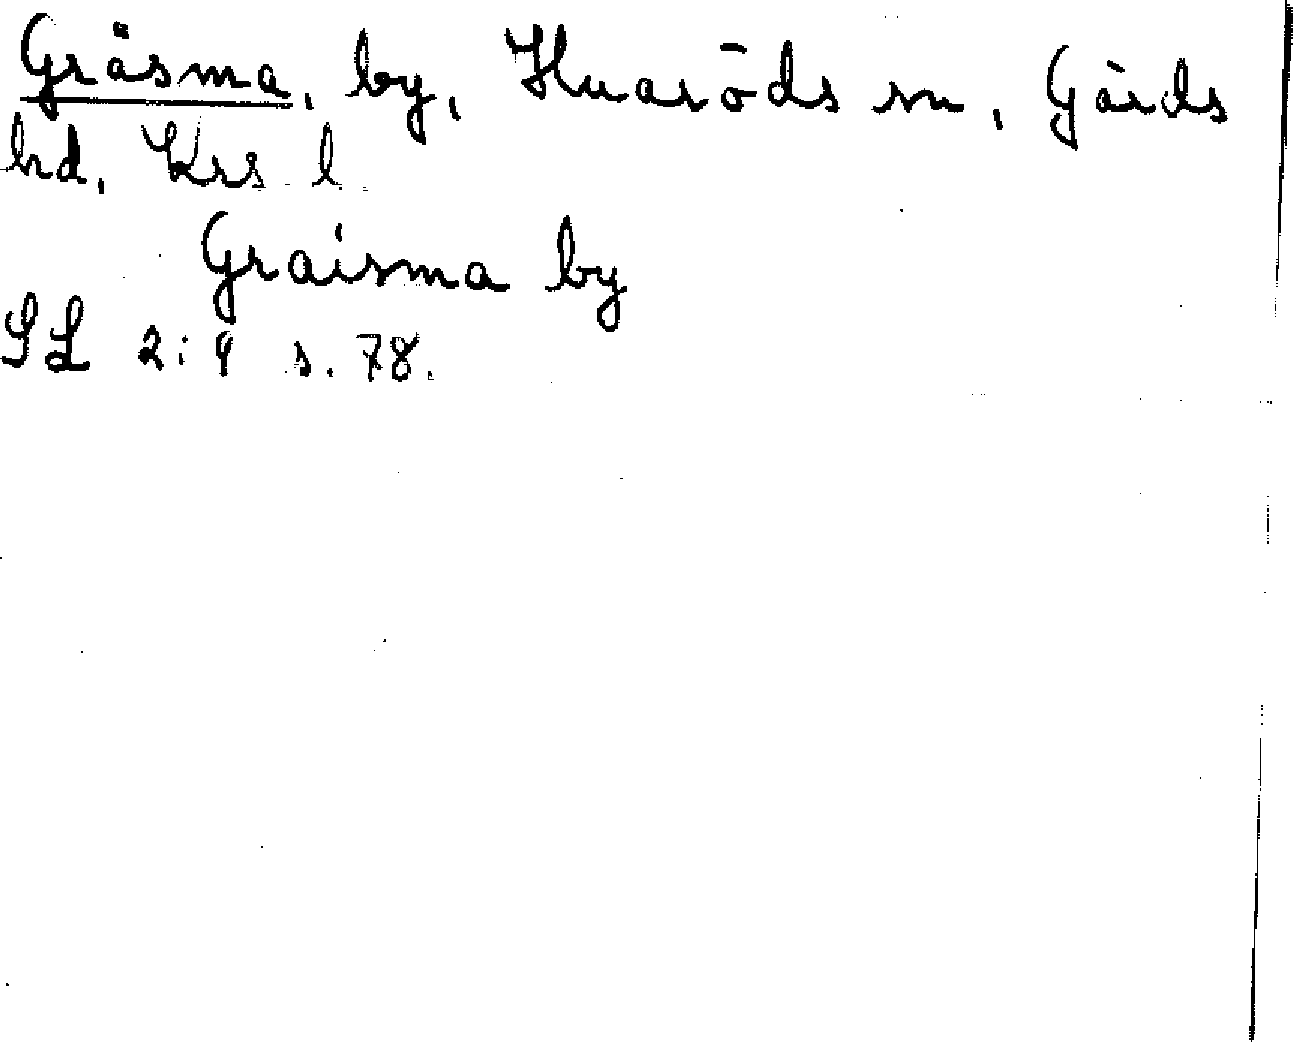 Gräsma, by, Huaröds sn, Gärds
hd, Krs l.
Graisma by
SL 2:9 s. 78.